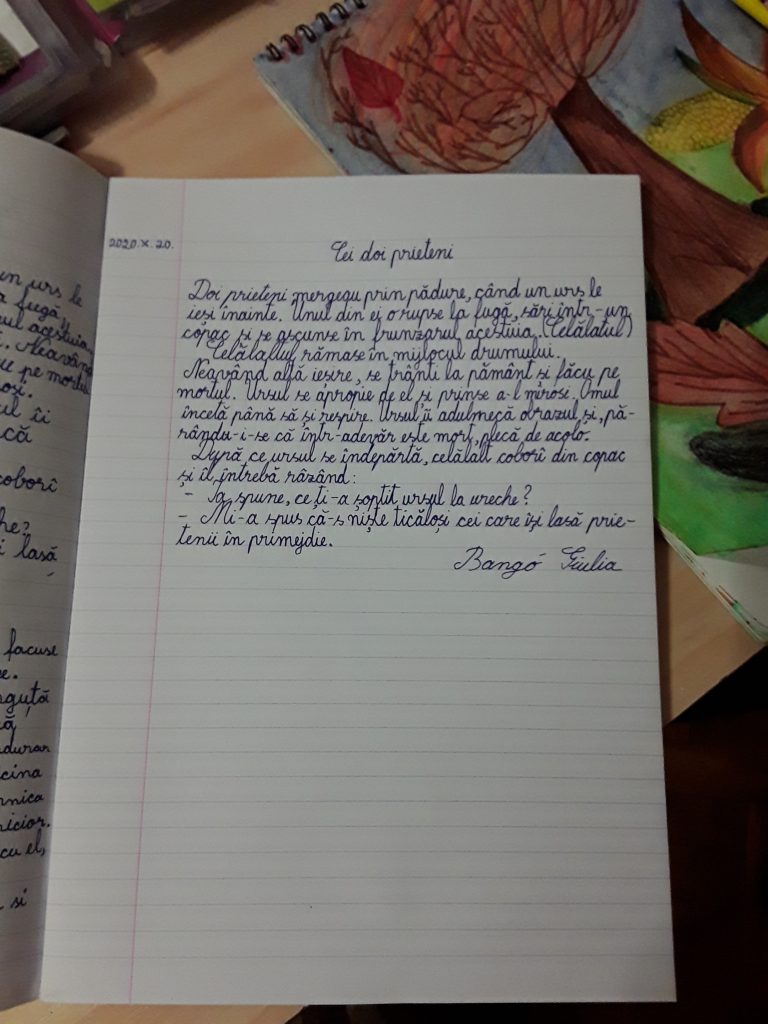 un urs le
a fugă,
ul acestuia,
. Neavând
cu pe mortul
rosi.
ul îi
că
coborî
he?
i lasă
facuse
e.
guță
ă
durar
cina
rnica
nicior.
cu el,
si
2020.X.20.
Cei doi prieteni
Doi prieteni mergeau prin pădure, când un urs le
ieși înainte. Unul din ei o rupse la fugă, sări într-un
copac și se ascunse în frunzarul acestuia. (Celălatul)
Celălalul rămase în mijlocul drumului.
Neavând altă ieșire, se trânti la pământ și făcu pe
mortul. Ursul se apropie de el și prinse a-l mirosi. Omul
încetă până să și respire. Ursul îi adulmecă obrazul și, pă-
rându-i-se că într-adevăr este mort, plecă de acolo.
După ce ursul se îndepărtă, celălalt coborî din copac
și îl întrebă râzând:
- Ia spune, ce ți-a șoptit ursul la ureche?
- Mi-a spus că-s niște ticăloși cei care își lasă prie-
tenii în primejdie.
Bangó Giulia